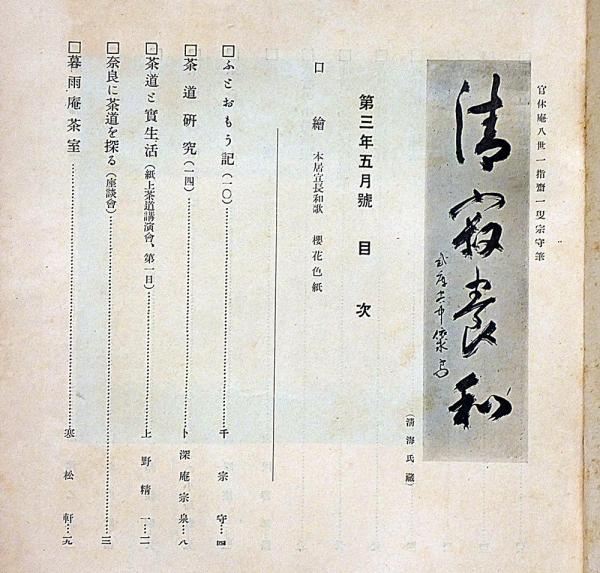 官休庵八世一指齋一叟宗守筆
清寂養和
(清海氏藏)
第三年五月號 目次
口繪 本居宣長和歌 櫻花色紙
□ふとおもう記(一〇)……千宗守…四
□茶道研究(一四)……卜深庵宗泉…八
□茶道と實生活(紙上茶道講演會、第一日)……上野精一…一二
□奈良に茶道を探る(座談會)……三
□暮雨庵茶室……寒松軒…一九